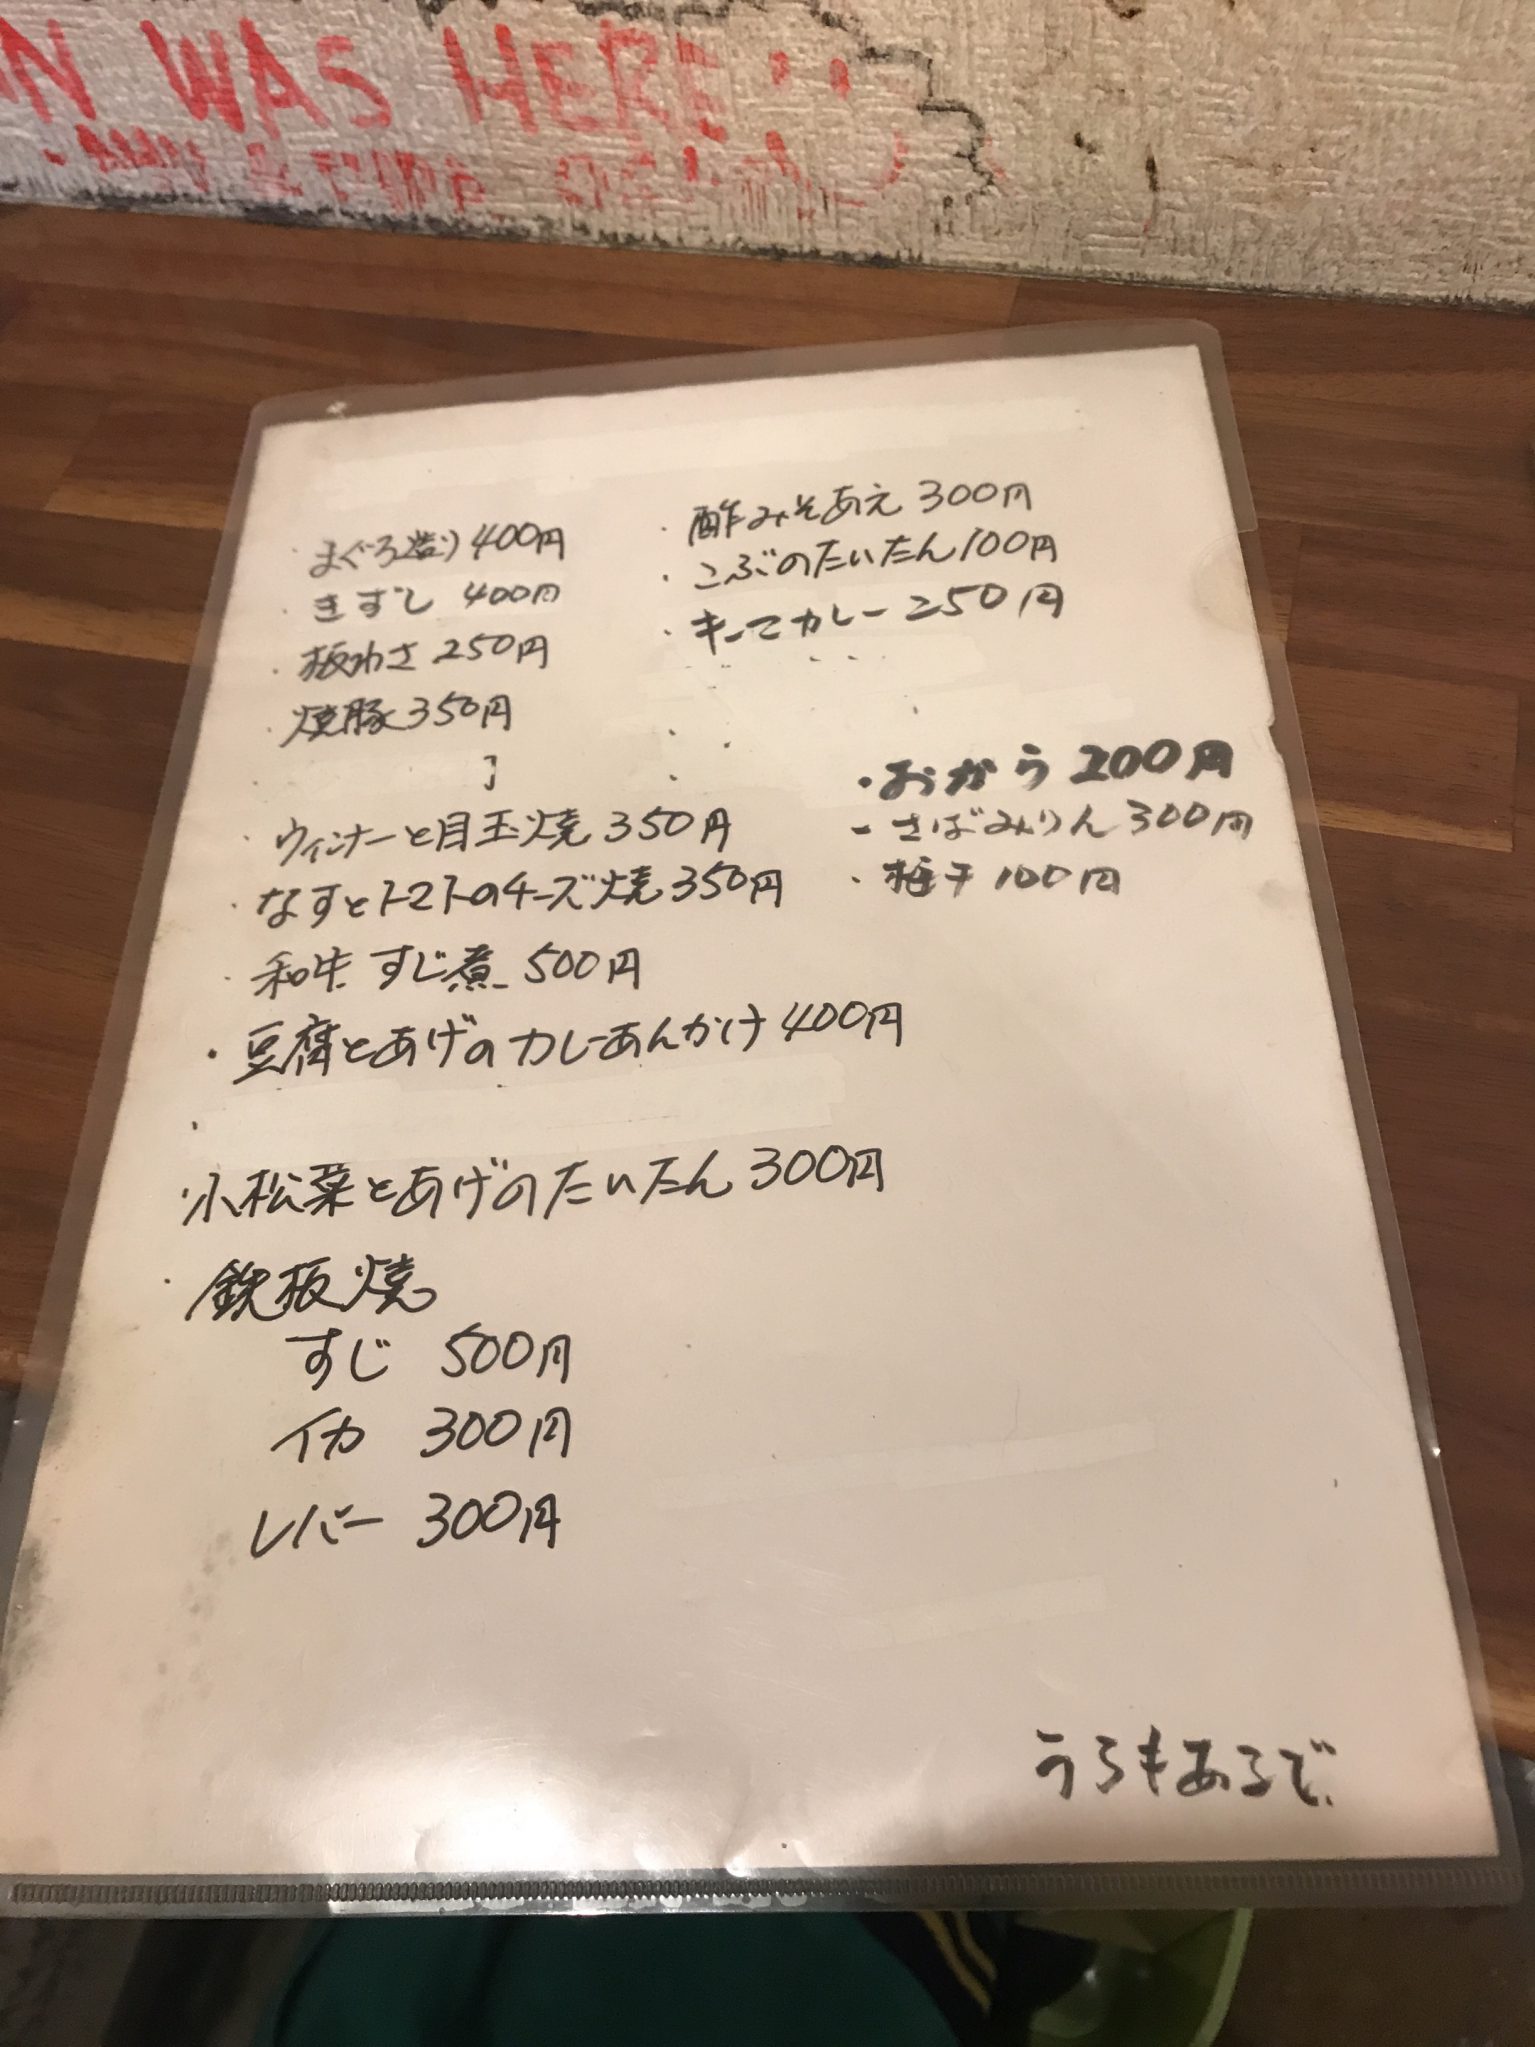 N WAS HERE
・まぐろ造り 400円
・きずし 400円
・板わさ 250円
・焼豚 350円
・ウィンナーと目玉焼 350円
・なすとトマトのチーズ焼 350円
・和牛すじ煮 500円
・豆腐とあげのカレーあんかけ 400円
小松菜とあげのたいたん 300円
・鉄板焼
すじ 500円
イカ 300円
レバー 300円
・酢みそあえ 300円
・こぶのたいたん 100円
・キーマカレー 250円
・おから 200円
・さばみりん 300円
・梅干 100円
うらもあるで